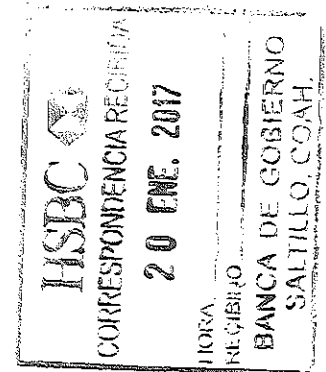 HSBC
CORRESPONDENCIA RECIBIDA
20 ENE. 2017
HORA
RECIBIÓ
BANCA DE GOBIERNO
SALTILLO, COAH.